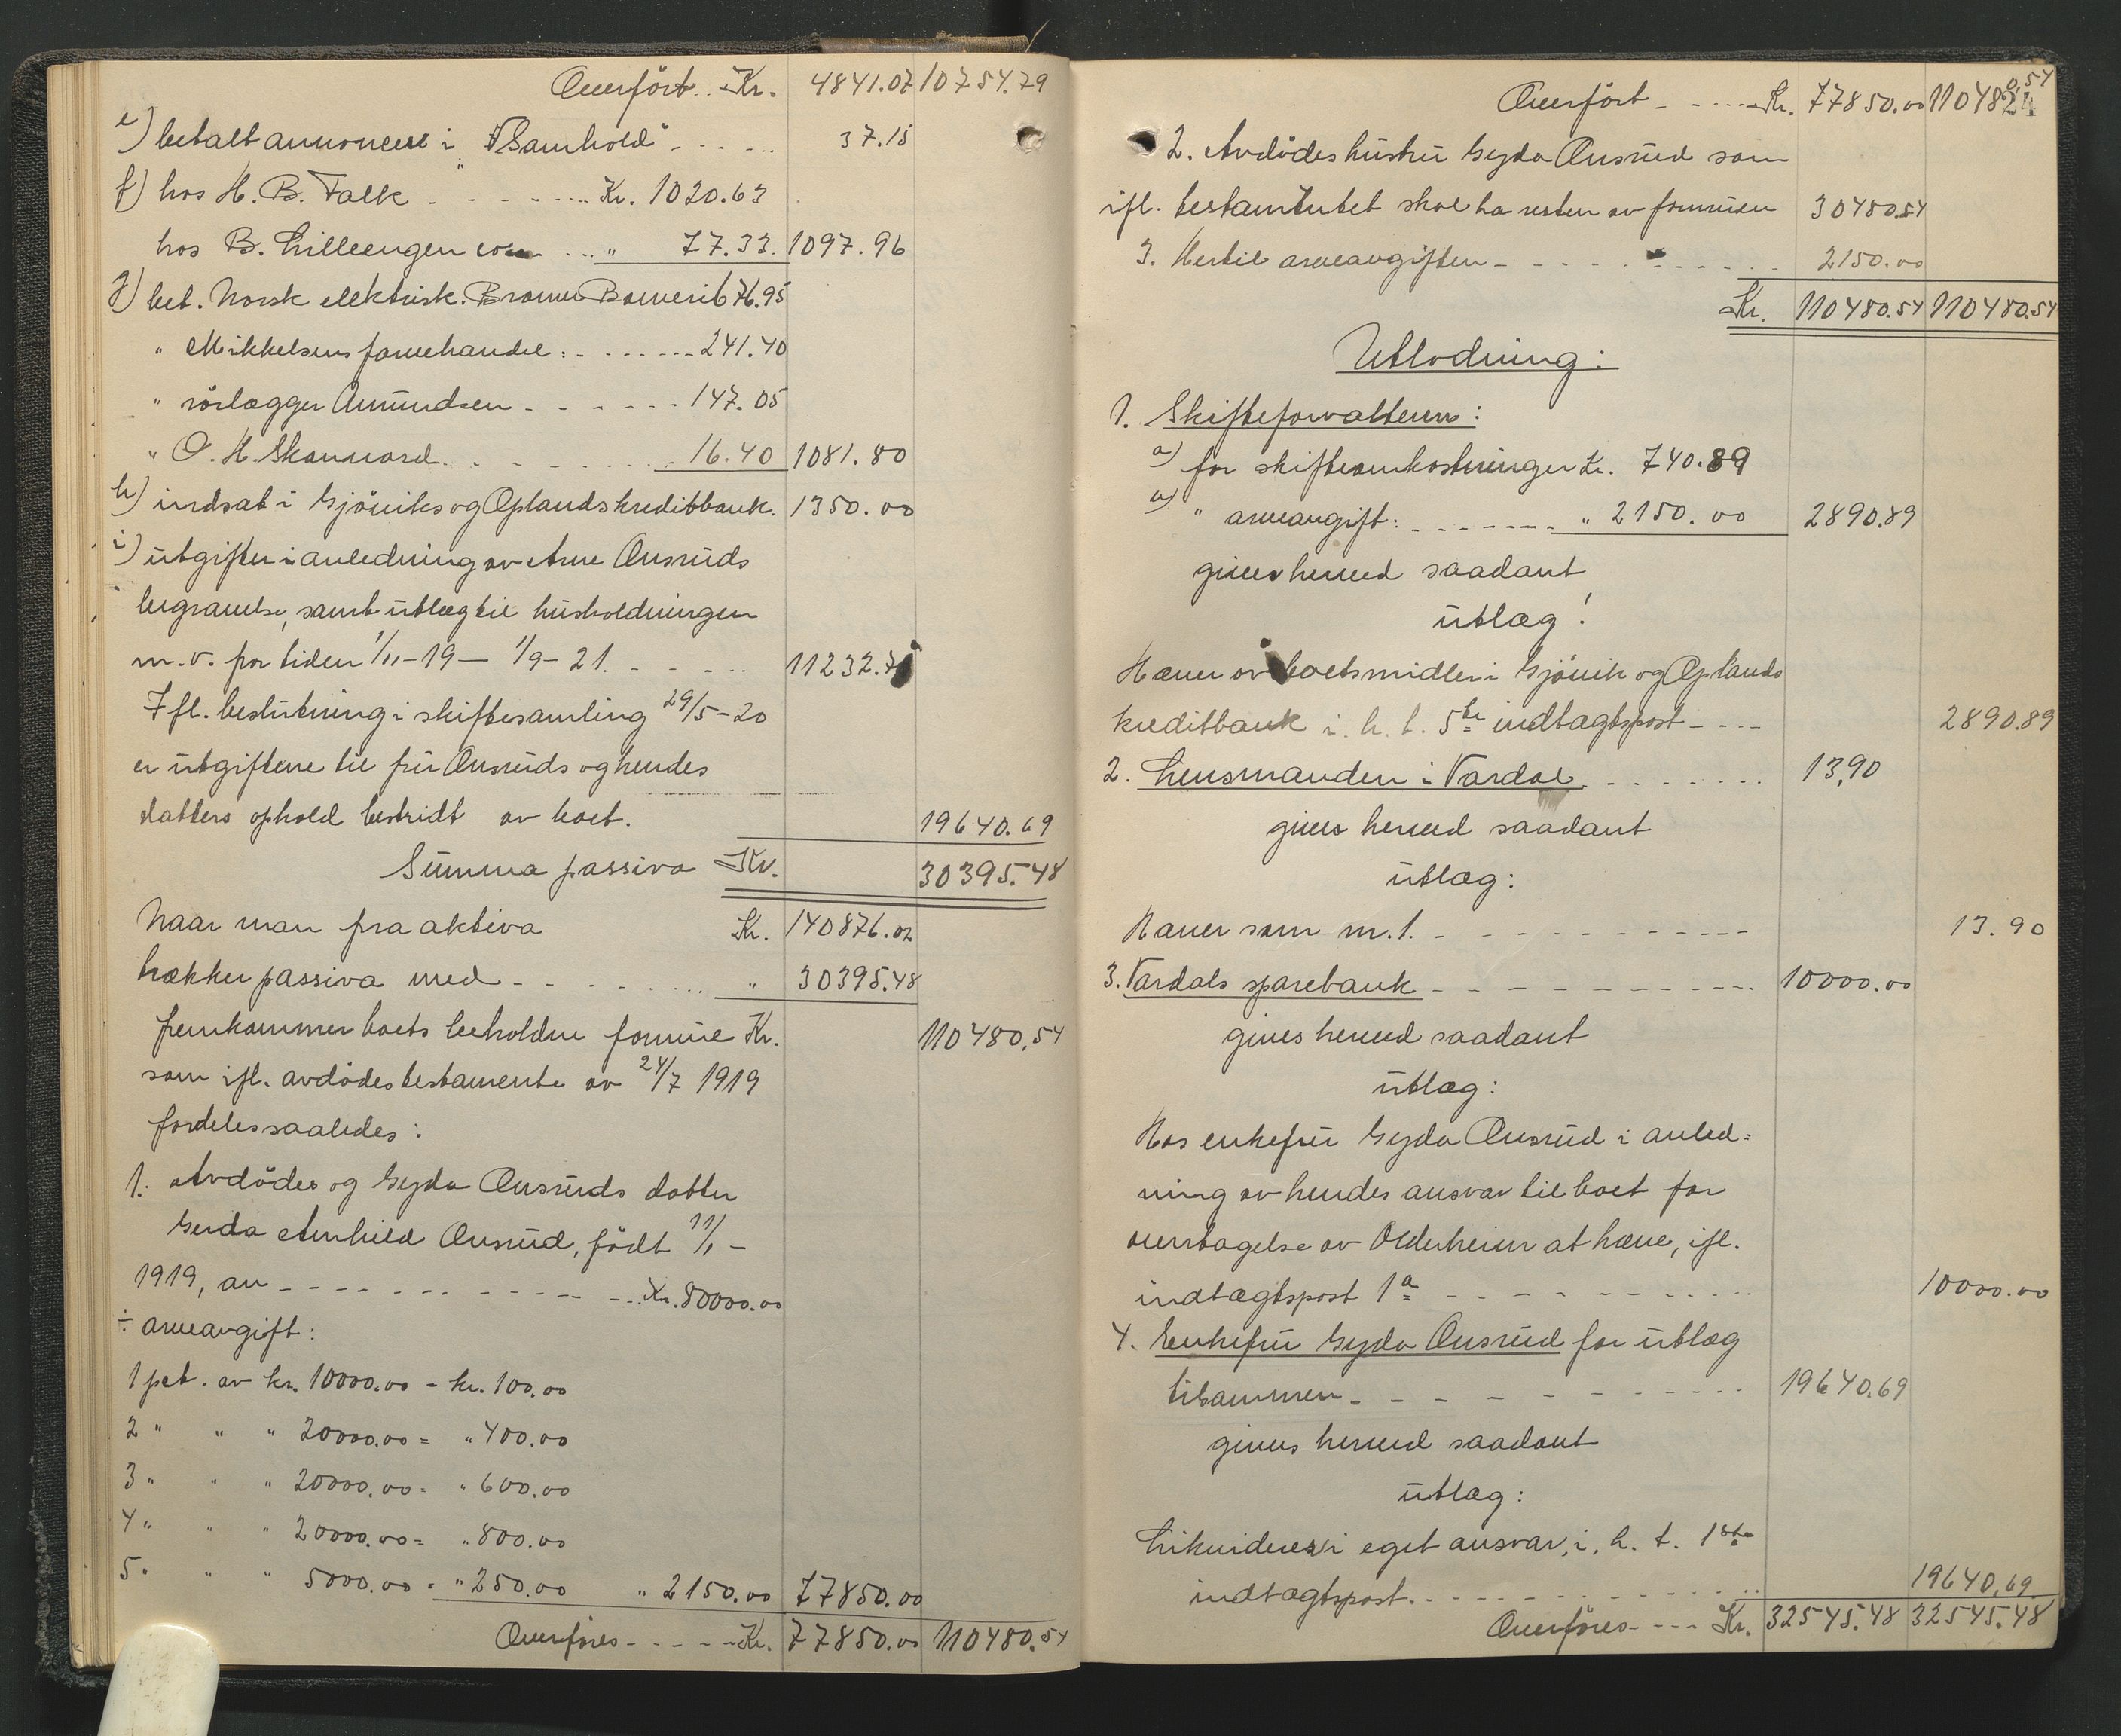 Overført.. Kr. 4841.07 10754.79
e) betalt annoncer i "Samhold" - - - ... 37.15
f) hos H. B. Falk - - - - ... Kr. 1020.63
hos B. Lilleengen ... " 77.33. 1097.96
g) bet. Norsk elektrisk. Brown Boweri 676.95
" Mikkelsens farvehandel: - - - - - 241.40
" rörlægger Amundsen - - - - - - 147.05
" O. H. Skonnord. - - - - - - 16.40 1081.80
h) indsat i Gjöviks og Oplands kreditbank. 1350.00
i) utgifter i anledning av Arne Onsruds
begravelse, samt utlæg til husholdningen
m.v. for tiden 1/11-19 – 1/9-21. - - - ... 11232.71
Ifl. beslutning i skiftesamling 29/5-20
er utgiftene til fru Onsruds og hendes
datters ophold bestridt av boet. 19640.69
Summa passiva Kr. 30395.48
Naar man fra aktiva Kr. 140876.02
trækker passiva med - - - - - ... " 30395.48
fremkommer boets beholdne formue Kr. 110480.54
som ifl. avdödes testamente av 24/7 1919
fordeles saaledes:
1. Avdödes og Gyda Onsruds datter
Gerda Arnhild Onsrud, födt 11/1 -
1919, arv - - - - - - - - - - - ... Kr. 80000.00
÷ arveavgift:
1 pct. av kr. 10000.00 = kr. 100.00
2 " " " 20000.00 = " 400.00
3 " " " 20000.00 = " 600.00
4 " " " 20000.00 = " 800.00
5 " " " 5000.00 = " 250.00 " 2150.00 77850.00
Overføres - - - - - Kr. 77850.00 110480.54
Overført - - ..... Kr. 77850.00 110480.54
24
2. Avdödes hustru Gyda Onsrud som
ifl. testamentet skal ha resten av formuen 30480.54
3. Hertil arveavgiften - - - - - - ... 2150.00
Kr. 110480.54 110480.54
Utlodning:
1. Skifteforvalteren:
a) for skifteomkostninger Kr. 740.89
b) " arveavgift: - - - - - - - " 2150.00 2890.89
gives herved saadant
utlæg:
Hæver av boets midler i Gjövik og Oplands
kreditbank i. h. t. 5te indtægtspost - - - - 2890.89
2. Lensmanden i Vardal. - - - - - - - 13,90
gives herved saadant
utlæg:
Hæver som nr. 1. - - - - - - - - - - - - 13.90
3. Vardals sparebank - - - - - - - - - - - 10000.00
gives herved saadant
utlæg:
Hos enkefru Gyda Onsrud i anled=
ning av hendes ansvar til boet for
overtagelse av Olderheim at hæve, ifl.
indtægtspost 1a - - - - - - - - ..... 10000.00
4. Enkefru Gyda Onsrud for utlæg
tilsammen - - - - - - - - - ..... 19640.69
gives herved saadant
utlæg:
Likvideres i eget ansvar, i. h. t. 1ste
indtægtspost. - - - - - - - - - - - 19640,69
Overføres - - - - Kr. 32545.48 32545.48